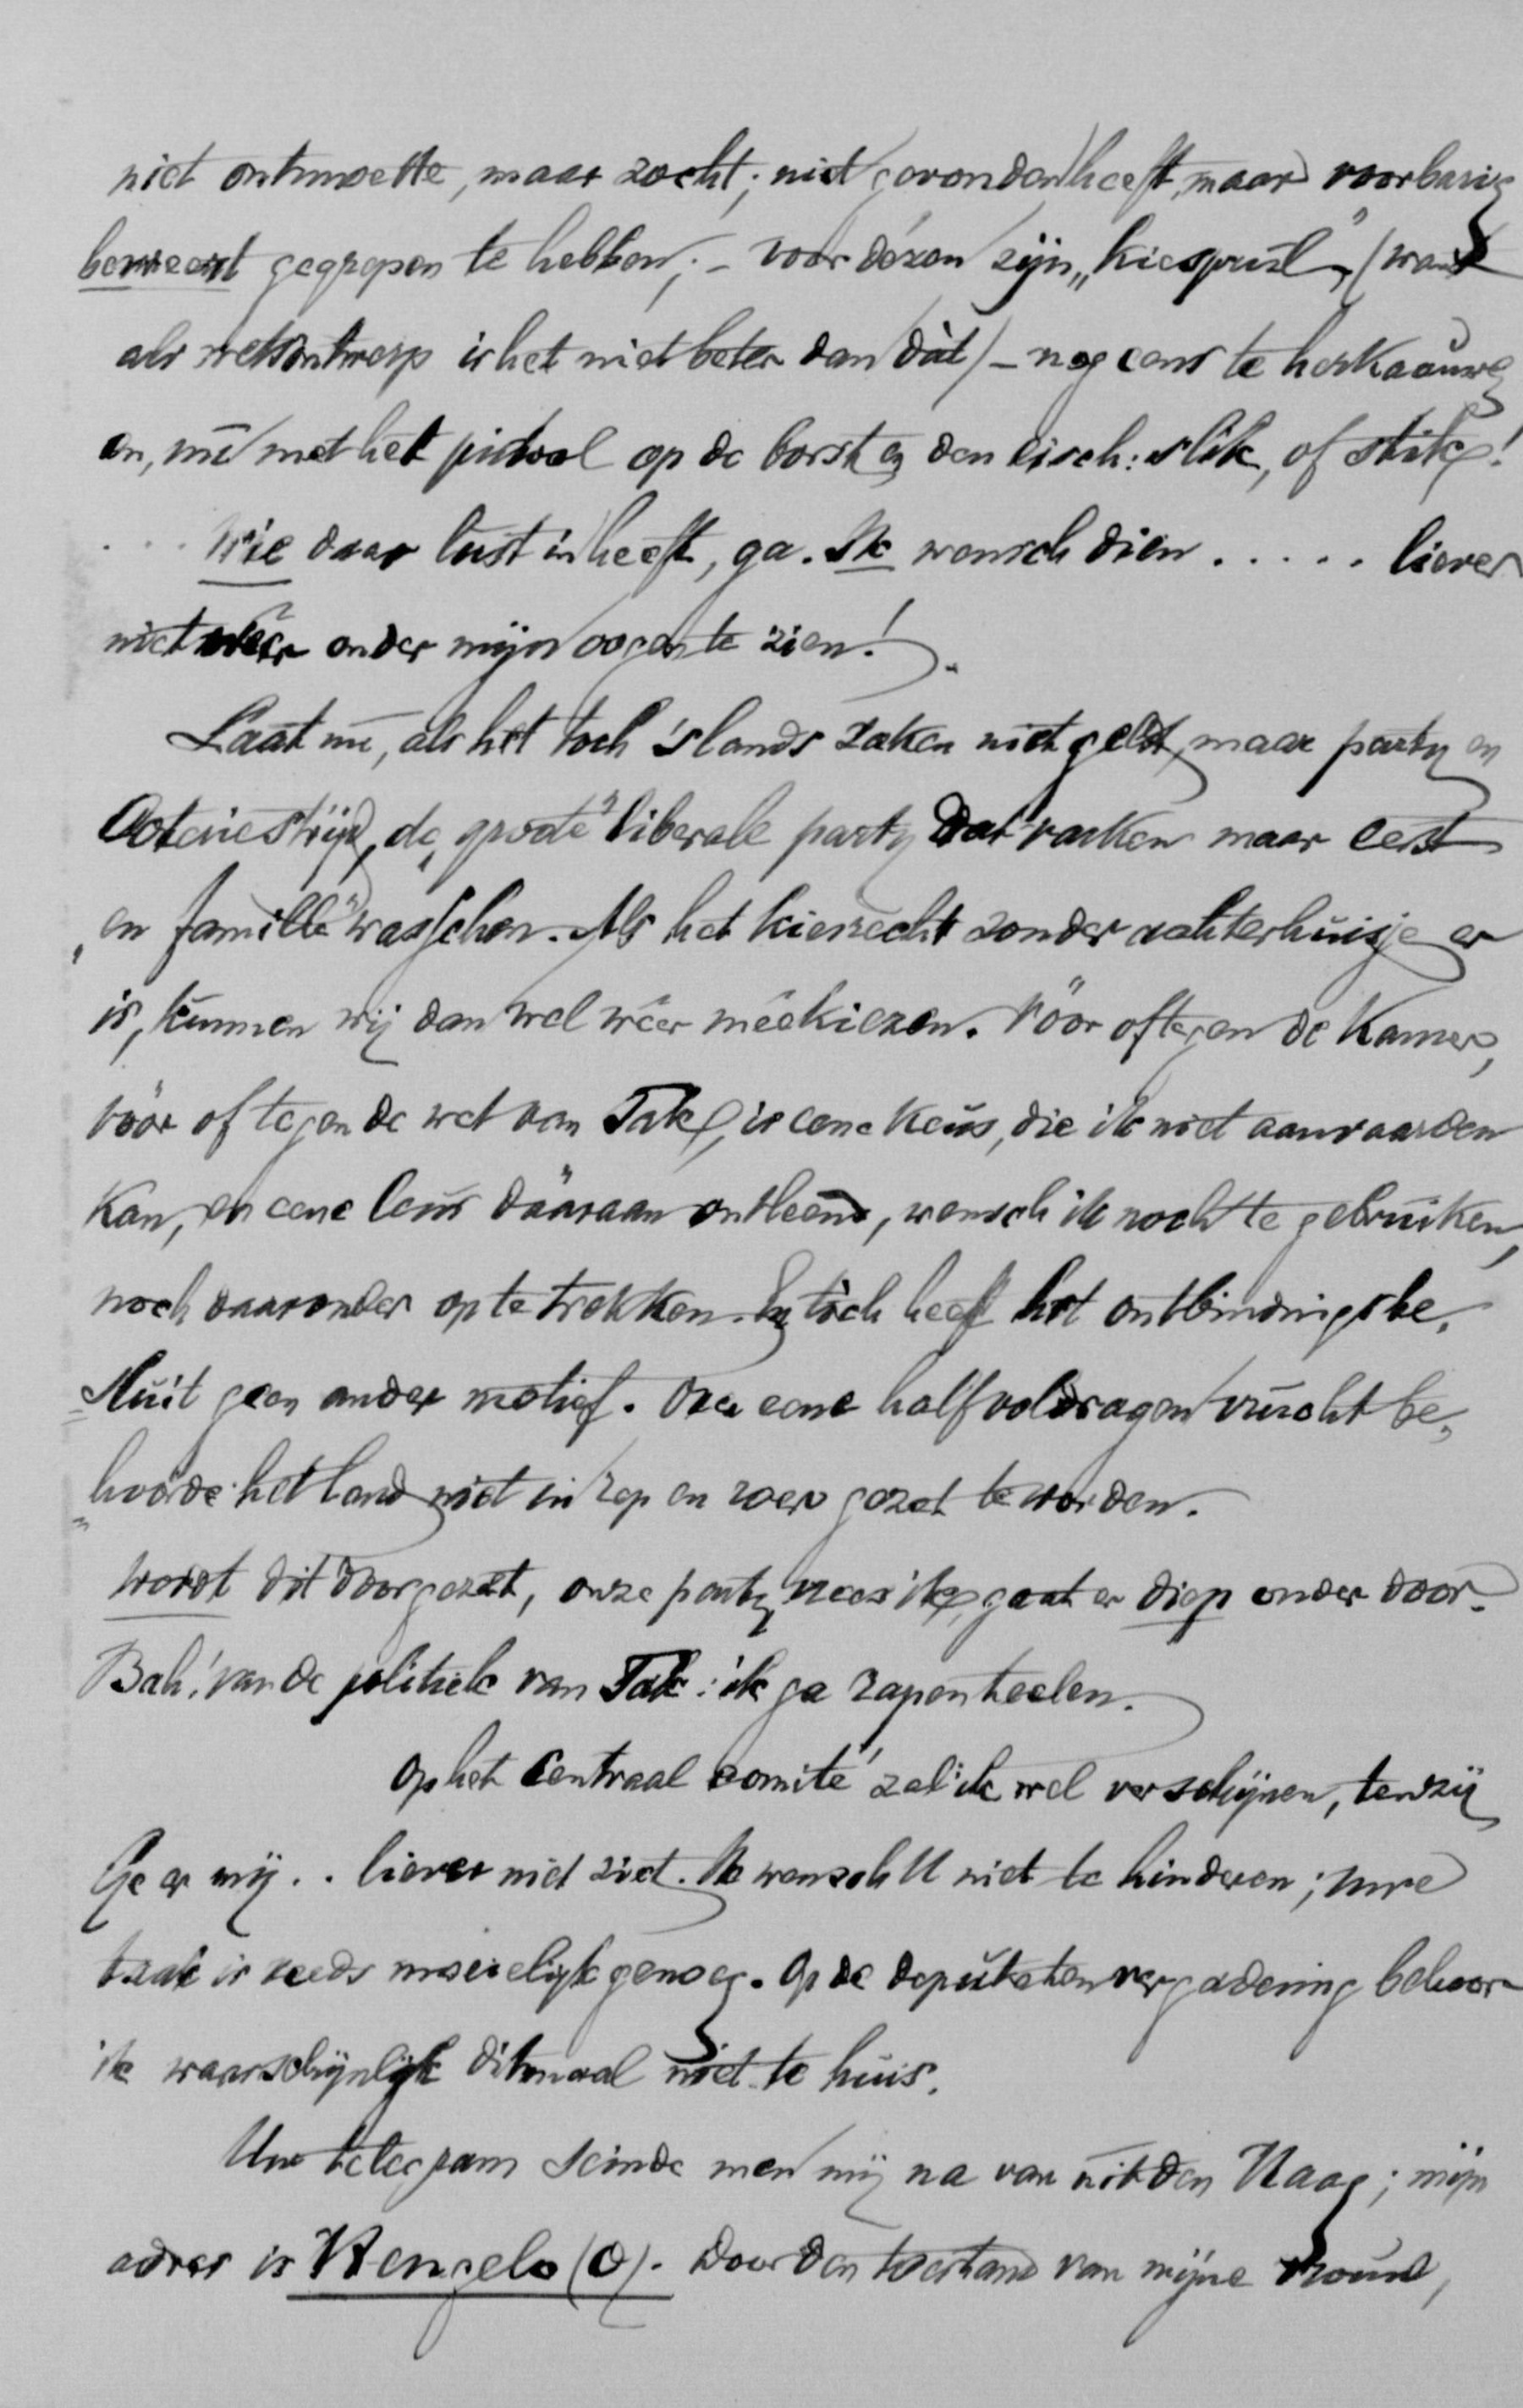 niet ontmoette, maar zocht; niet gevonden heeft, maar voorbarig
beweert gegrepen te hebben; – voor dézen zijn „kiesprul”, (want
als wetsontwerp is het niet beter dan dàt) – nog eens te herkaauwen
en, nu met het pistool op de borst en den eisch: slik, of stik!
... Wie daar lust in heeft, ga. Ik wensch dien ..... liever
niet wêer onder mijn oogen te zien!
Laat nu, als het toch 's lands zaken niet geldt, maar party en
Coteriestrijd, de „groote” liberale party dat varken maar eerst
„en famille” wasschen. Als het kiesrecht zonder achterhuisje er
is, kunnen wij dan wel wêer mêekiezen. Vóór of tegen de Kamer,
vóór of tegen de wet van Tak, is eene keus, die ik niet aanvaarden
kan, en eene leus dááraan ontleend, wensch ik noch te gebruiken,
noch daaronder op te trekken. En tòch heeft het ontbindingsbe-
sluit geen ander motief. Over eene half voldragen vrucht be-
hoorde het land niet in rep en roer gezet te worden.
Wordt dit doorgezet, onze party, vrees ik, gaat er diep onder door.
Bah! van de politiek van Tak: ik ga rapen teelen.
Op het Centraal comité zal ik wel verschijnen, tenzij
Ge er mij .. liever niet ziet. Ik wensch U niet te hinderen; uwe
taak is reeds moeielijk genoeg. Op de deputatenvergadering behoor
ik waarschijnlijk ditmaal niet te huis.
Uw telegram seinde men mij na van uit den Haag; mijn
adres is Hengelo (O). Door den toestand van mijne vrouw,